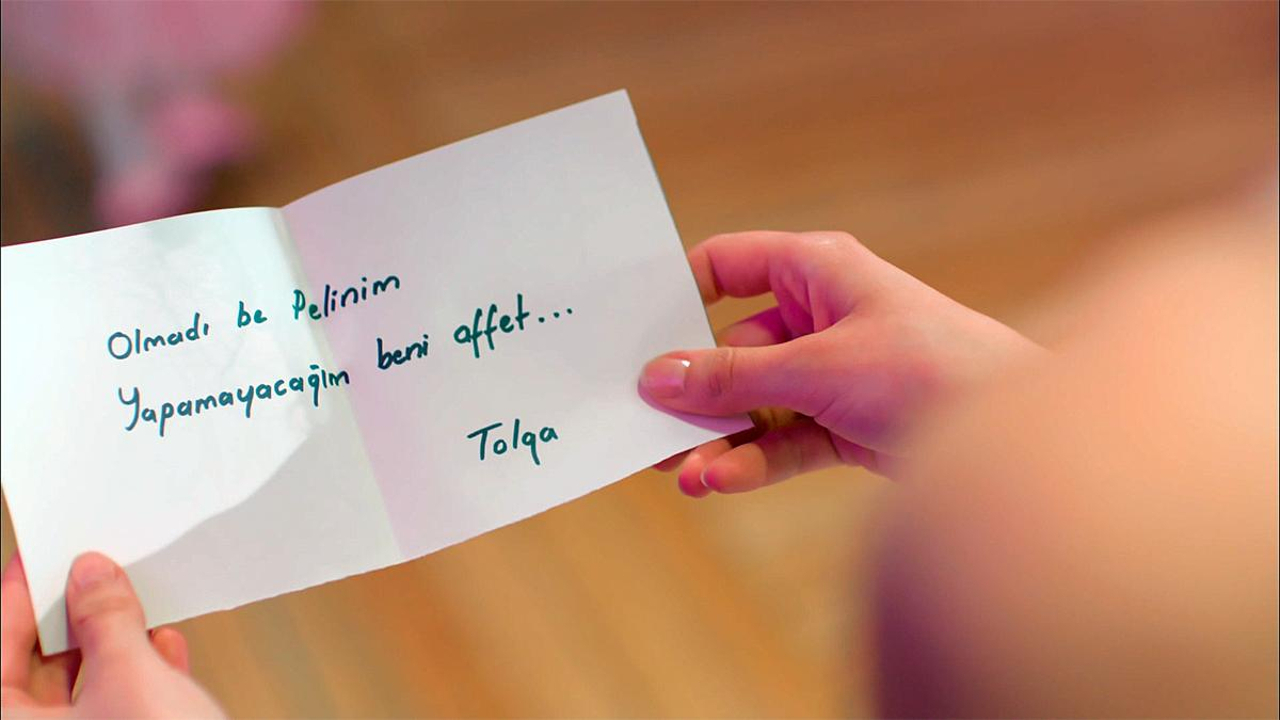 Olmadı be Pelinim
Yapamayacağım beni affet...
Tolga